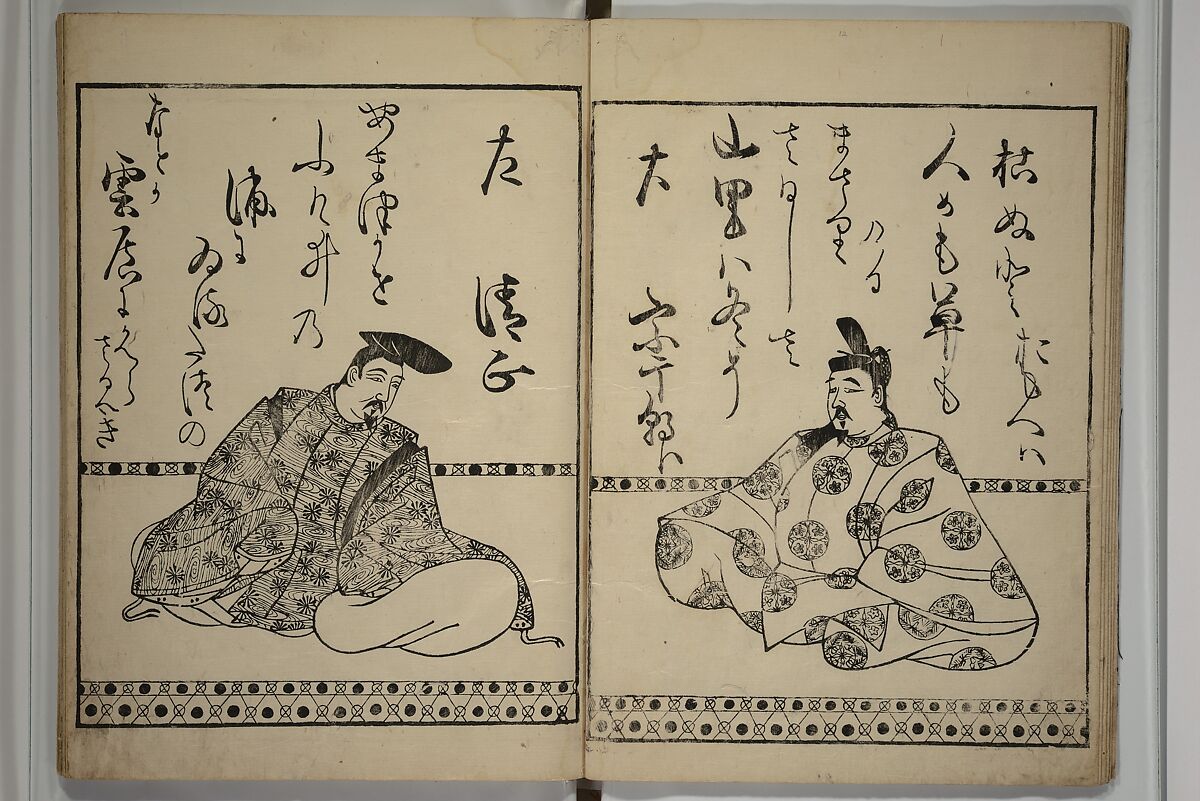 右 宗于朝臣
山里ハ冬そ
さひしさ
まさり
ける
人めも草も
枯ぬとおもへハ
左 清正
あま津かせ
ふけ井乃
浦に
ゐるたつの
なとか
雲居にかへら
さるへき